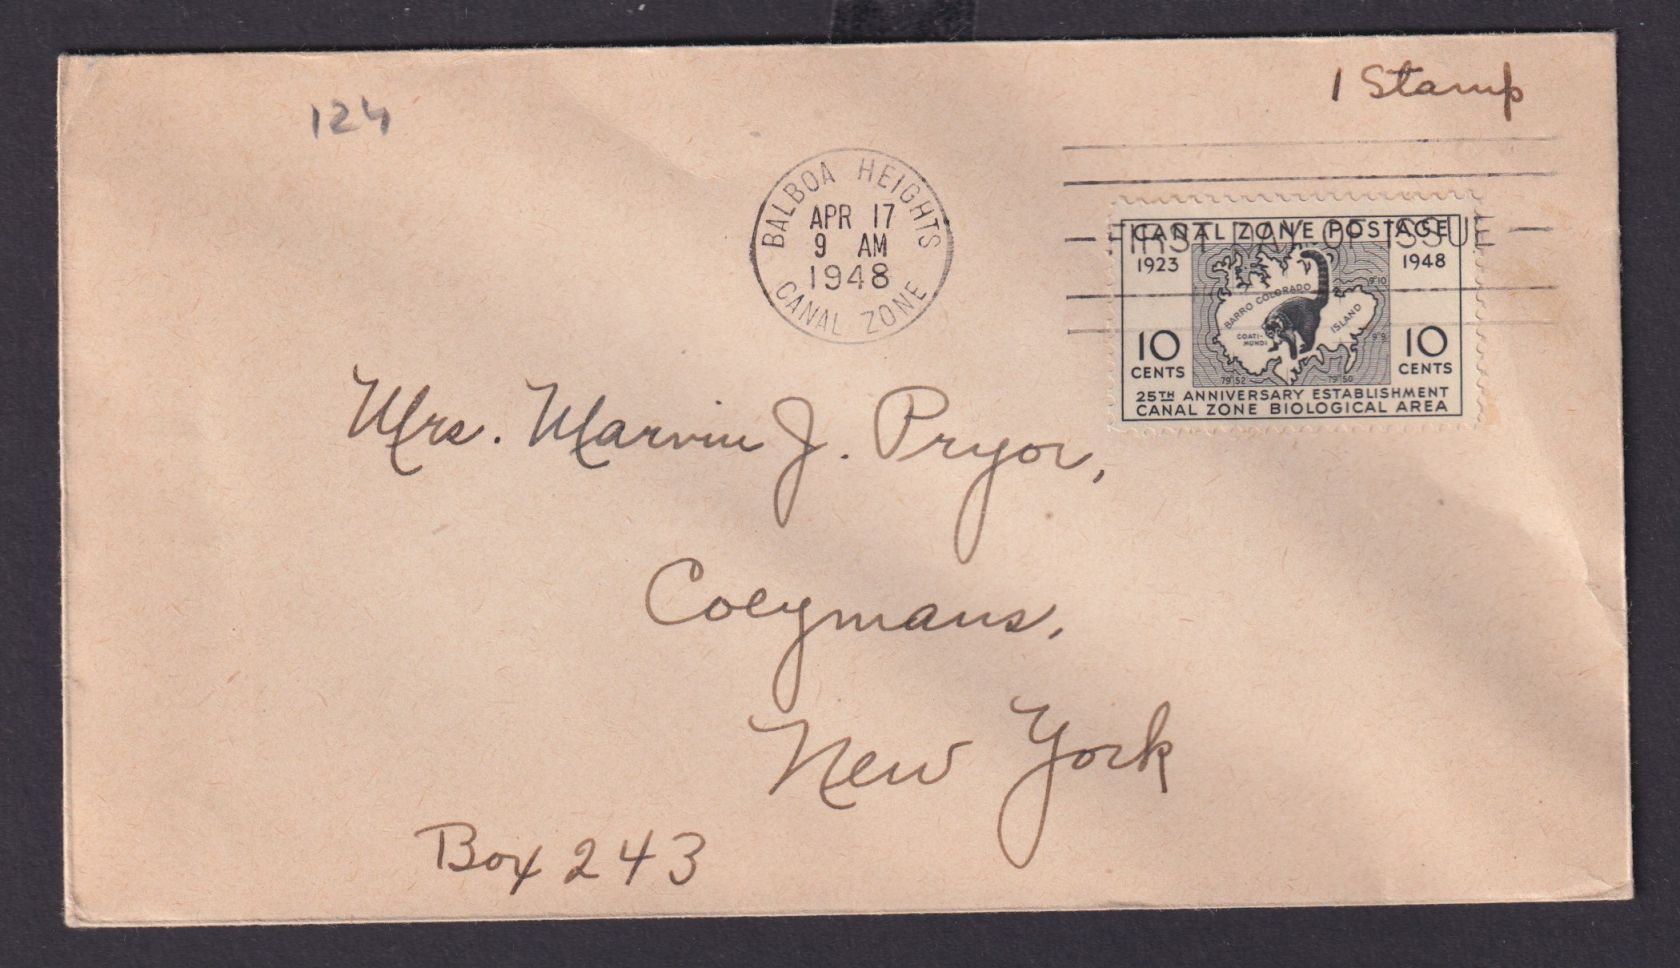 1 Stamp
124
BALBOA HEIGHTS
APR 17
9 AM
1948
CANAL ZONE
FIRST DAY OF ISSUE
CANAL ZONE POSTAGE
1923 1948
BARRO COLORADO ISLAND
COATI-
MUNDI
9°10
9°9
10 CENTS 10 CENTS
79°52 79°50
25TH ANNIVERSARY ESTABLISHMENT
CANAL ZONE BIOLOGICAL AREA
Mrs. Marvin J. Pryor,
Coeymans,
New York
Box 243